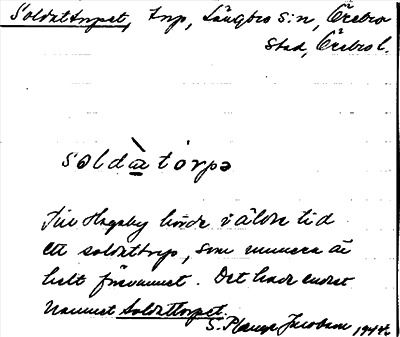 Soldattorpet, Torp, Längbro s:n, Örebro
stad, Örebro l.
soldàtòrpə
Till Hagaby hörde i äldre tid
ett soldattorp, som numera är
helt försvunnet. Det hade endast
namnet Soldattorpet.
S. Jacobson 1944